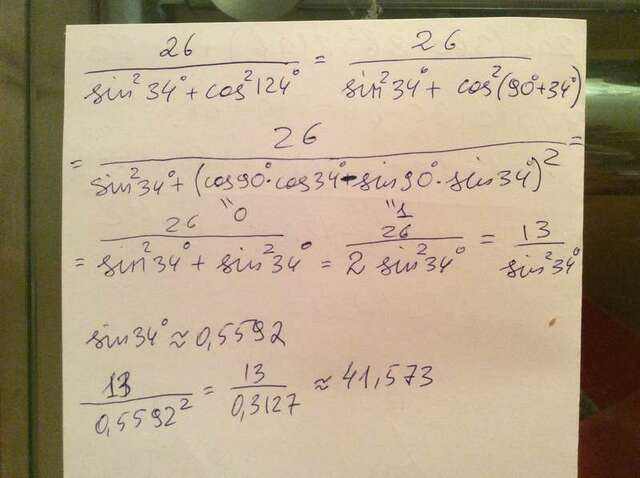 26 / (sin²34° + cos²124°) = 26 / (sin²34° + cos²(90°+34°))
= 26 / (sin²34° + (cos90°·cos34° - sin90°·sin34°)²) =
"0 "1
= 26 / (sin²34° + sin²34°) = 26 / (2 sin²34°) = 13 / sin²34°
sin34° ≈ 0,5592
13 / 0,5592² = 13 / 0,3127 ≈ 41,573